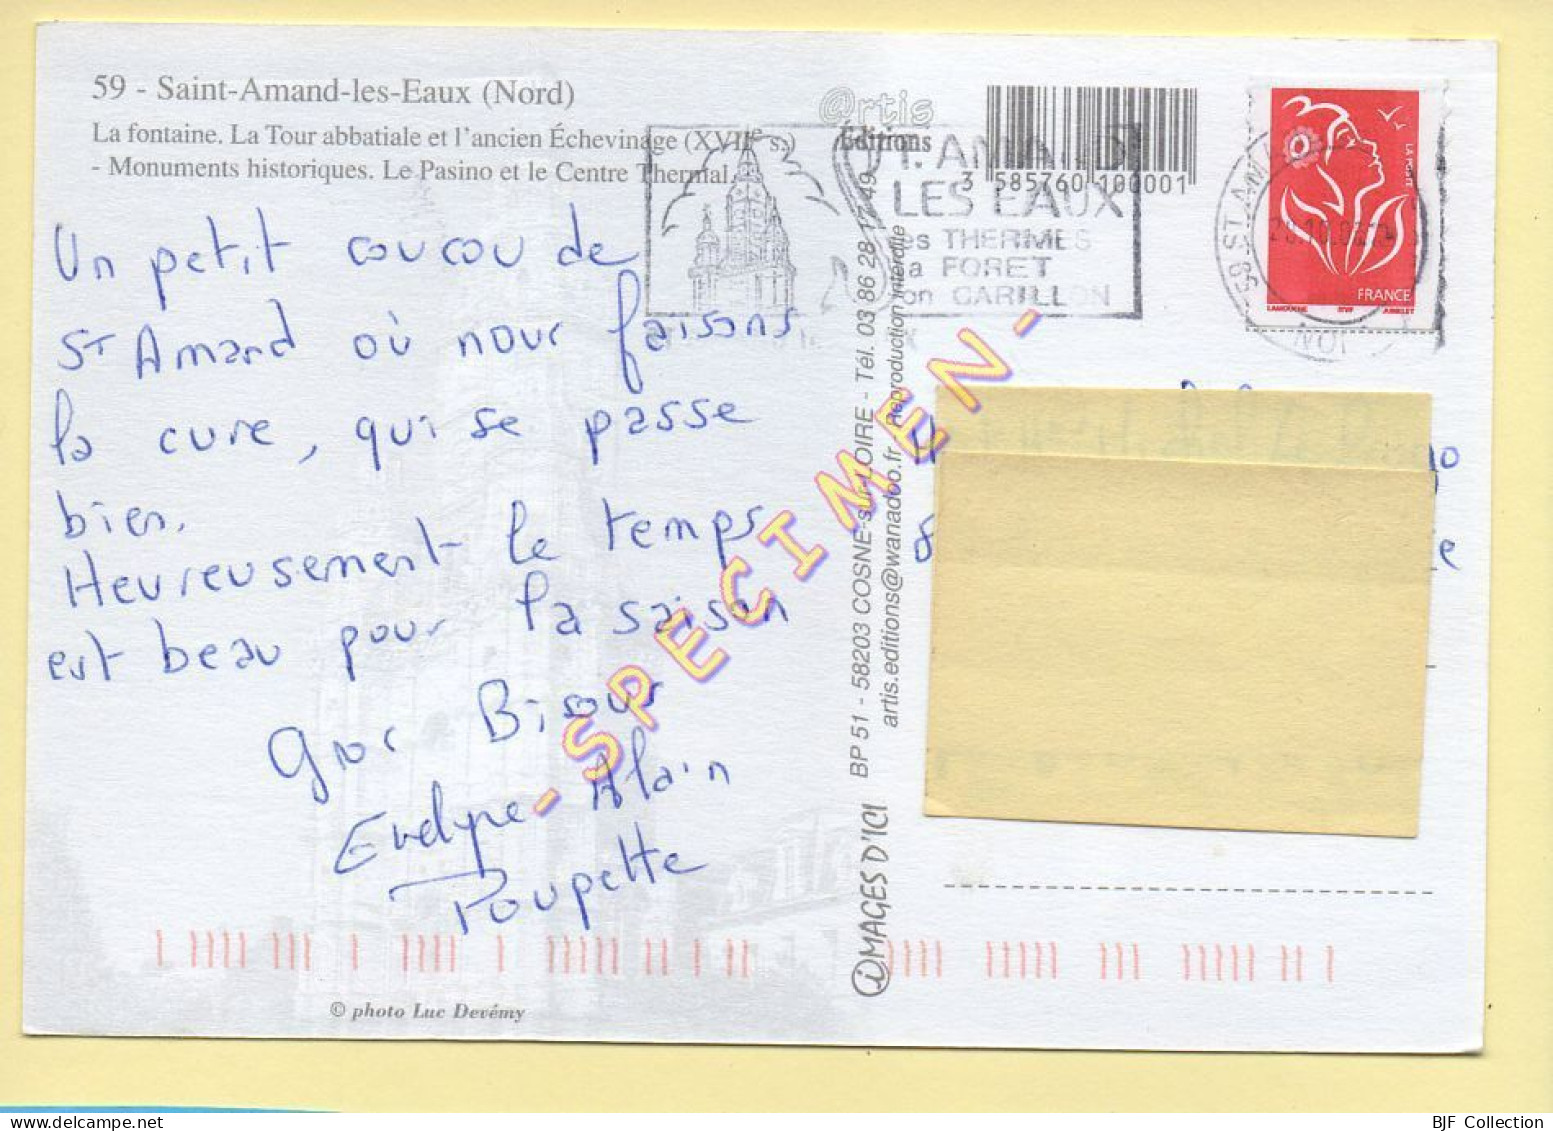 59 - Saint-Amand-les-Eaux (Nord)
La fontaine. La Tour abbatiale et l'ancien Échevinage (XVIIe s.)
- Monuments historiques. Le Pasino et le Centre Thermal.
@rtis
Éditions
3 585760 100001
ST. AMAND
LES EAUX
THERMES
FORET
CARILLON
59 ST AM
LA POSTE
FRANCE
LAMOUCHE ITVF JUMELET
Un petit coucou de
St Amand où nous faisons
la cure, qui se passe
bien.
Heureusement le temps
est beau pour la saison
Gros Bisous
Evelyne - Alain
Poupette
- SPECIMEN -
iMAGES D'ICI BP 51 - 58203 COSNE-sur-LOIRE - Tél. 03 86 28 17 49
artis.editions@wanadoo.fr Reproduction interdite
© photo Luc Devémy
BJF Collection